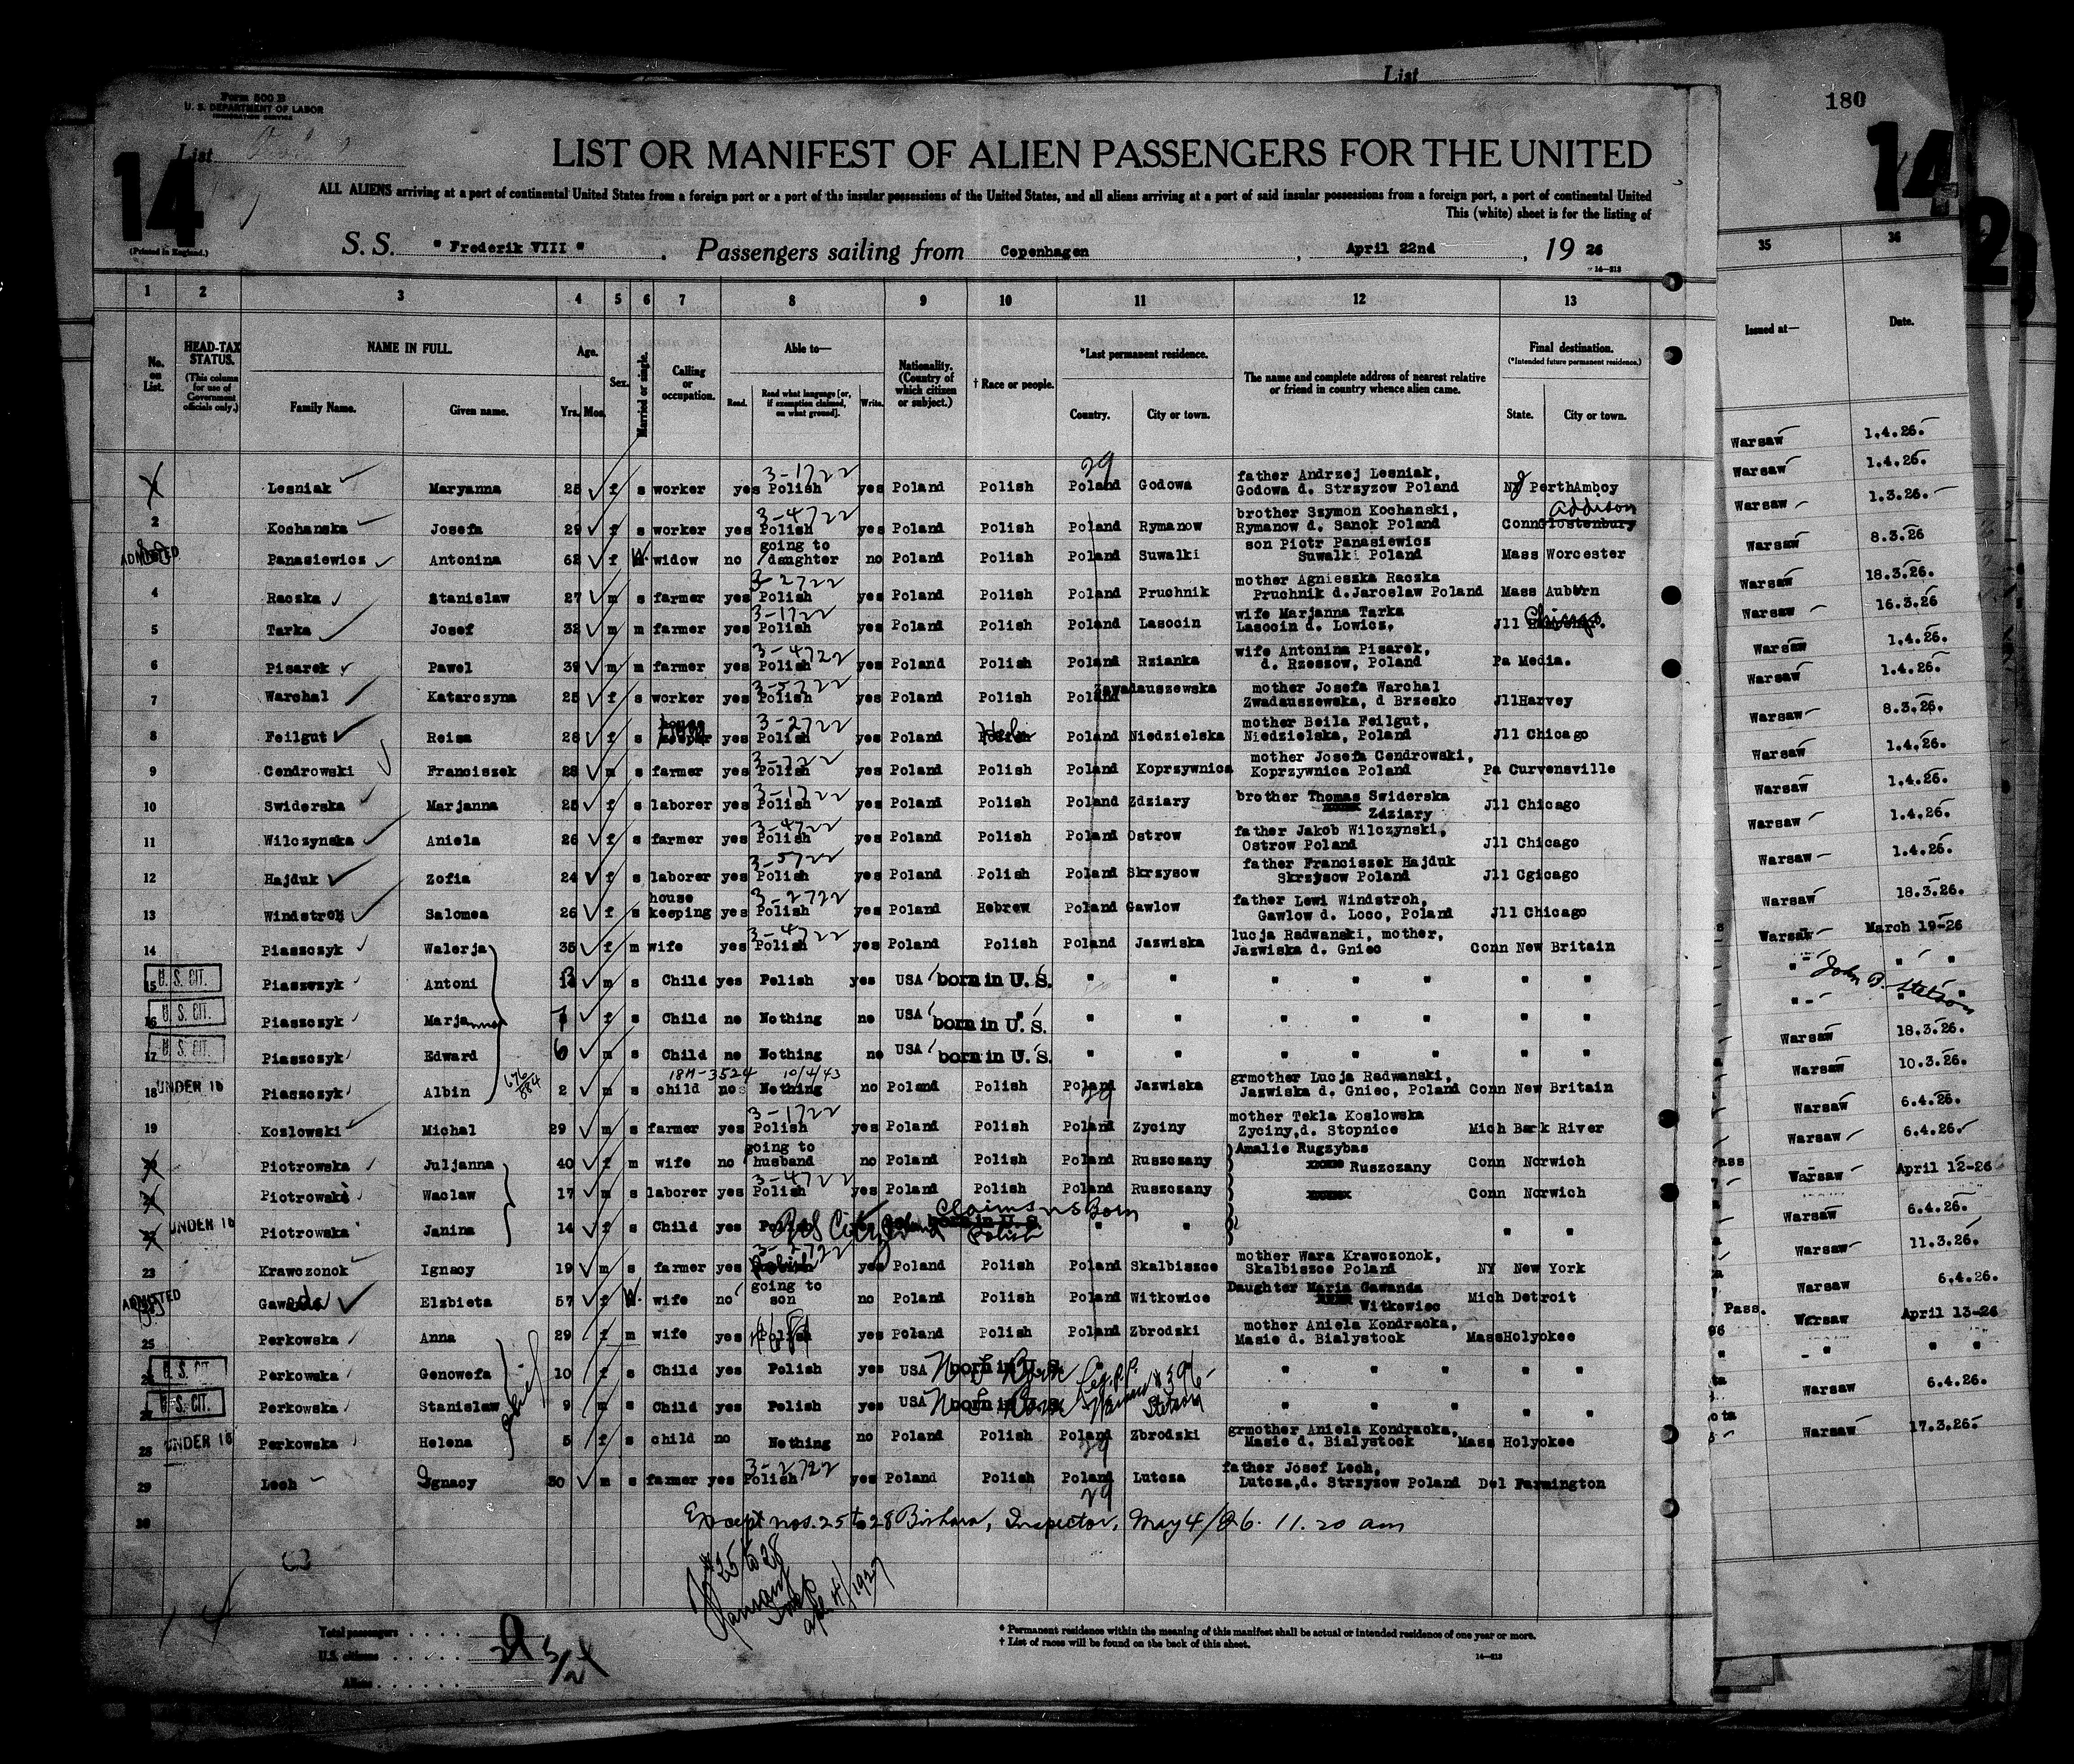 List
180
Form 500 B
U. S. DEPARTMENT OF LABOR
IMMIGRATION SERVICE
List
14
14
2
(Printed in England.)
LIST OR MANIFEST OF ALIEN PASSENGERS FOR THE UNITED
ALL ALIENS arriving at a port of continental United States from a foreign port or a port of the insular possessions of the United States, and all aliens arriving at a port of said insular possessions from a foreign port, a port of continental United
This (white) sheet is for the listing of
S. S. " Frederik VIII " , Passengers sailing from Copenhagen , April 22nd , 19 26
16—813
1 2 3 4 5 6 7 8 9 10 11 12 13 35 36
No. on List.
HEAD-TAX STATUS. (This column for use of Government officials only.)
NAME IN FULL. Family Name. Given name.
Age. Yrs. Mos.
Sex.
Married or single.
Calling or occupation.
Able to— Read. Read what language [or, if exemption claimed, on what ground]. Write.
Nationality. (Country of which citizen or subject.)
† Race or people.
*Last permanent residence. Country. City or town.
The name and complete address of nearest relative or friend in country whence alien came.
Final destination. (*Intended future permanent residence.) State. City or town.
Issued at— Date.
Lesniak Maryanna 25 f s worker yes Polish yes Poland Polish Poland Godowa father Andrzej Lesniak, Godowa d. Strzyzow Poland NJ PerthAmboy
3-1722 29
2 Kochanska Josefa 29 f s worker yes Polish yes Poland Polish Poland Rymanow brother Szymon Kochanski, Rymanow d. Sanok Poland Conn Glostenbury
3-4722 addison
ADMITTED Panasiewicz Antonina 62 f W. widow no going to daughter no Poland Polish Poland Suwalki son Piotr Panasiewicz Suwalki Poland Mass Worcester
4 Raczka Stanislaw 27 m s farmer yes Polish yes Poland Polish Poland Pruchnik mother Agnieszka Raczka Pruchnik d.Jaroslaw Poland Mass Auburn
3-2722
5 Tarka Josef 32 m m farmer yes Polish yes Poland Polish Poland Lasocin wife Marjanna Tarka Lasocin d. Lowicz. Jll Chicago
3-1722
6 Pisarek Pawel 39 m m farmer yes Polish yes Poland Polish Poland Rzianka wife Antonina Pisarek, d. Rzeszow, Poland Pa Media.
3-4722
7 Warchal Katarczyna 25 f s worker yes Polish yes Poland Polish Poland Zawadauszewska mother Josefa Warchal Zwadauszewska, d Brzesko JllHarvey
3-5722
8 Feilgut Reisa 28 f s house keeper yes Polish yes Poland Heb Poland Niedzielska mother Beila Feilgut, Niedzielska, Poland Jll Chicago
3-2722
9 Cendrowski Franciszek 28 m s farmer yes Polish yes Poland Polish Poland Koprzywnica mother Josefa Cendrowski, Koprzywnica Poland Pa Curvensville
10 Swiderska Marjanna 25 f s laborer yes Polish yes Poland Polish Poland Zdziary brother Thomas Swiderska Zdziary Jll Chicago
3-1722
11 Wilczynska Aniela 26 f s farmer yes Polish yes Poland Polish Poland Ostrow father Jakob Wilczynski, Ostrow Poland Jll Chicago
3-4722
12 Hajduk Zofia 24 f s laborer yes Polish yes Poland Polish Poland Skrzysow father Franciszek Hajduk Skrzysow Poland Jll Cgicago
3-5722
13 Windstroh Salomea 26 f s house keeping yes Polish yes Poland Hebrew Poland Gawlow father Lewi Windstroh, Gawlow d. Loco, Poland Jll Chicago
3-2722
14 Piaszczyk Walerja 35 f m wife yes Polish yes Poland Polish Poland Jazwiska lucja Radwanski, mother, Jazwiska d. Gniec Conn New Britain
3-4722
15 U. S. CIT. Piaszczyk Antoni 13 m s Child yes Polish yes USA born in U. S. " " " " " " "
16 U. S. CIT. Piaszczyk Marjanna 7 f s Child no Nothing no USA born in U. S. " " " " " " "
17 U. S. CIT. Piaszczyk Edward 6 m s Child no Nothing no USA born in U. S. " " " " " " "
18M-3524 10/4/43
18 UNDER 16 Piaszczyk Albin 2 m s child no Nothing no Poland Polish Poland Jazwiska grmother Lucja Radwanski, Jazwiska d. Gniec, Poland Conn New Britain
676/884 29
19 Koslowski Michal 29 m s farmer yes Polish yes Poland Polish Poland Zyciny mother Tekla Koslowska Zyciny,d. Stopnice Mich Bark River
3-1722
Piotrowska Juljanna 40 f m wife no going to husband no Poland Polish Poland Ruszczany Amalie Rugzybas Ruszczany Conn Norwich
Piotrowska Waclaw 17 m s laborer yes Polish yes Poland Polish Poland Ruszczany Conn Norwich
3-4722
UNDER 16 Piotrowska Janina 14 f s Child yes Polish born in U. S. Polish " " " "
Claims US Born
23 Krawczonok Ignacy 19 m s farmer yes Polish yes Poland Polish Poland Skalbiszce mother Wara Krawczonok, Skalbiszce Poland NY New York
ADMITTED Gawenda Elzbieta 57 f W. wife no going to son no Poland Polish Poland Witkowice Daughter Maria Gawanda Witkowiec Mich Detroit
25 Perkowska Anna 29 f m wife yes Polish yes Poland Polish Poland Zbrodzki mother Aniela Kondracka, Masie d. Bialystock MassHolyokee
26 U. S. CIT. Perkowska Genowefa 10 f s Child yes Polish yes USA born in U. S. " " " " "
27 U. S. CIT. Perkowska Stanislaw 9 m s Child yes Polish yes USA born in U. S. " " " " "
Stetson
28 UNDER 16 Perkowska Helena 5 f s child no Nothing no Poland Polish Poland Zbrodzki grmother Aniela Kondracka, Masie d. Bialystock Mass Holyokee
29
29 Lech Ignacy 30 m s farmer yes Polish yes Poland Polish Poland Lutcza father Josef Lech, Lutcza,d. Strzyzow Poland Del Farmington
3-2722 29
30 Except nos. 25 to 28 Inspector, May 4/26. 11.20 am
#25 to 28
Total passengers . . . .
U.S. citizens . . . . .
Aliens . . . . . . .
* Permanent residence within the meaning of this manifest shall be actual or intended residence of one year or more.
† List of races will be found on the back of this sheet.
16—813
Warsaw 1.4.26.
Warsaw 1.4.26.
Warsaw 1.3.26.
Warsaw 8.3.26
Warsaw 18.3.26.
Warsaw 16.3.26
Warsaw 1.4.26.
Warsaw 1.4.26.
Warsaw 8.3.26.
Warsaw 1.4.26.
Warsaw 1.4.26.
Warsaw 1.4.26.
Warsaw 1.4.26.
Warsaw 18.3.26.
Warsaw March 19-26
" " "
John B. Stetson
Warsaw 18.3.26.
Warsaw 10.3.26.
Warsaw 6.4.26.
Warsaw 6.4.26.
Pass Warsaw April 12-26
Warsaw 6.4.26.
Warsaw 11.3.26.
Warsaw 6.4.26.
Pass. Warsaw April 13-26
" " "
Warsaw 6.4.26.
Warsaw 17.3.26.